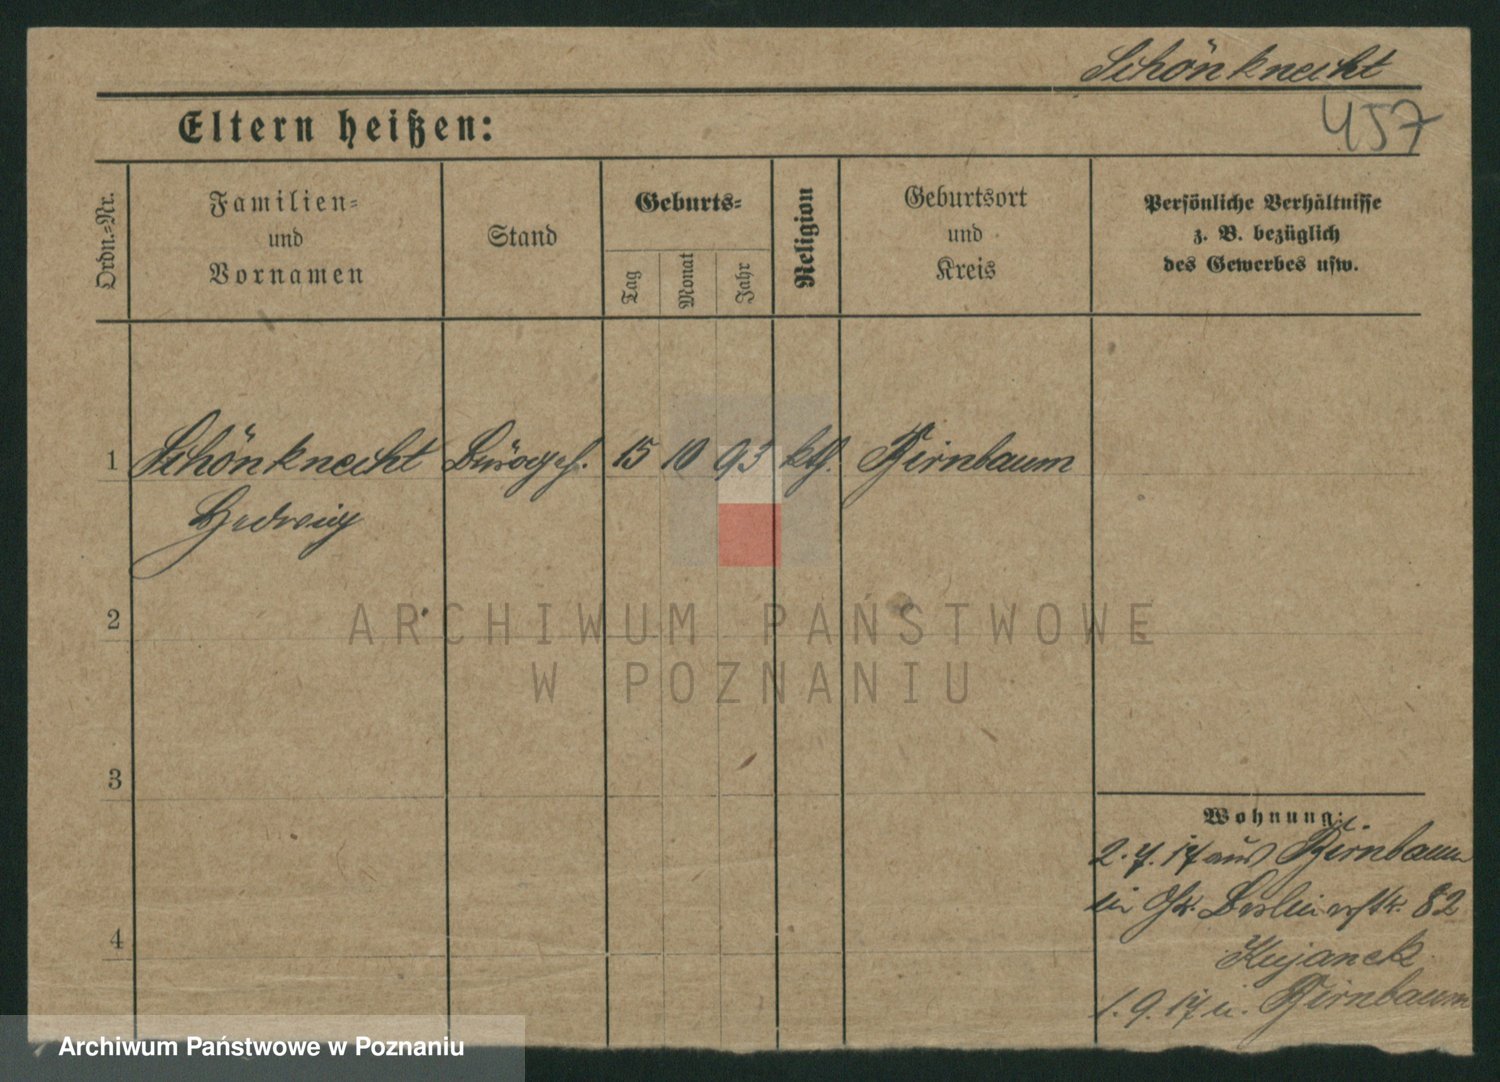 Schönknecht
457
Eltern heißen:
Ordn.-Nr.
Familien-
und
Vornamen
Stand
Geburts-
Tag
Monat
Jahr
Religion
Geburtsort
und
Kreis
Persönliche Verhältnisse
z. B. bezüglich
des Gewerbes usw.
1 Schönknecht Bürogeh. 15 10 93 kth. Birnbaum
Hedwig
2
3
4
Wohnung:
2.7.17 aus Birnbaum
in Berlinerstr. 82
Kujanek
1.9.17 n. Birnbaum
ARCHIWUM PAŃSTWOWE
W POZNANIU
Archiwum Państwowe w Poznaniu